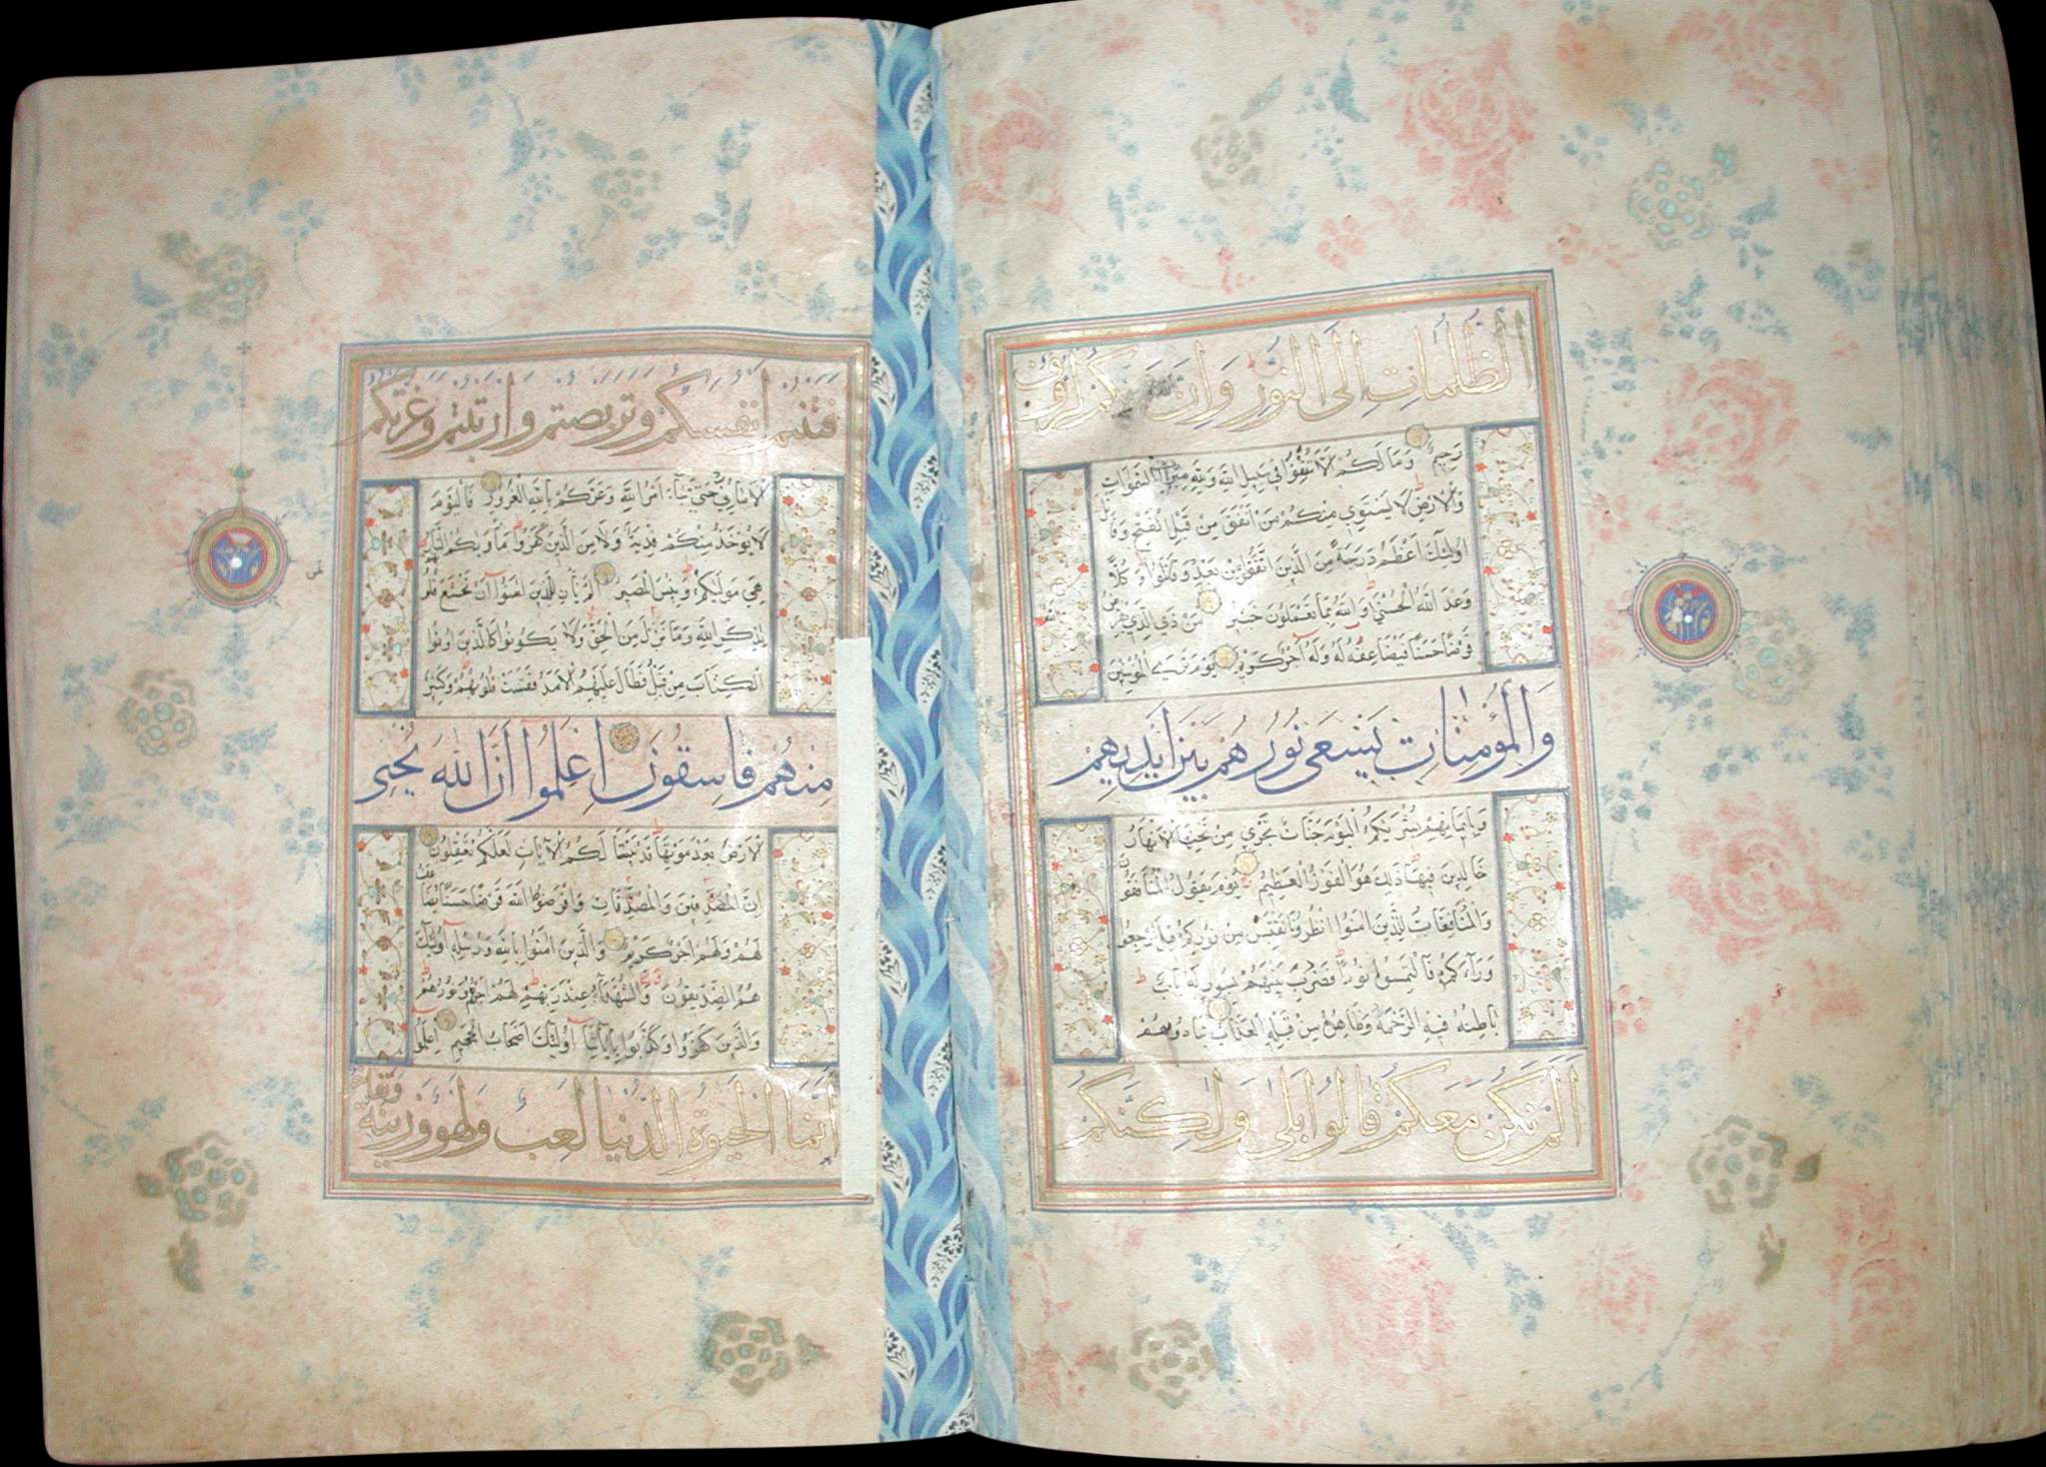 الظلمات إلى النور وإن الله بكم لرؤف
رحيم وما لكم ألا تنفقوا في سبيل الله ولله ميراث السموات
والأرض لا يستوي منكم من أنفق من قبل الفتح وقاتل
أولئك أعظم درجة من الذين أنفقوا من بعد وقاتلوا وكلا
وعد الله الحسنى والله بما تعملون خبير من ذي الذي يقرض
قرضا حسنا فيضاعفه له وله أجر كريم يوم ترى المؤمنين
والمؤمنات يسعى نورهم بين أيديهم
وبأيمانهم بشريكم اليوم جنات تجري من تحتها الأنهار
خالدين فيها ذلك هو الفوز العظيم يوم يقول المنافقون
والمنافقات للذين امنوا انظرونا نقتبس من نوركم قيل ارجعوا
وراءكم فالتمسوا نورا فضرب بينهم بسور له باب
باطنه فيه الرحمة وظاهره من قبله العذاب ينادونهم
ألم نكن معكم قالوا بلى ولكنكم
فتنتم أنفسكم وتربصتم وارتبتم وغرتكم
الأماني حتى جاء أمر الله وغركم بالله الغرور فاليوم
لا يؤخذ منكم فدية ولا من الذين كفروا مأويكم النار
هي موليكم وبئس المصير ألم يأن للذين امنوا أن تخشع قلوبهم
لذكر الله وما نزل من الحق ولا يكونوا كالذين اوتوا
الكتاب من قبل فطال عليهم الأمد فقست قلوبهم وكثير
منهم فاسقون اعلموا أن الله يحيي
الأرض بعد موتها قد بينا لكم الآيات لعلكم تعقلون
إن المصدقين والمصدقات وأقرضوا الله قرضا حسنا يضاعف
لهم ولهم أجر كريم والذين امنوا بالله ورسله أولئك
هم الصديقون والشهداء عند ربهم لهم أجرهم ونورهم
والذين كفروا وكذبوا بآياتنا أولئك أصحاب الجحيم اعلموا
أنما الحيوة الدنيا لعب ولهو وزينة وتفاخر